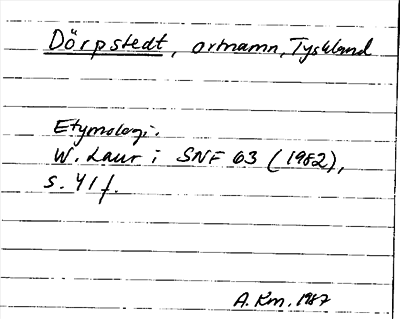 Dörpstedt, ortnamn, Tyskland
Etymologi.
W. Laur i SNF 63 (1982),
s. 41 f.
A. Km. 1987